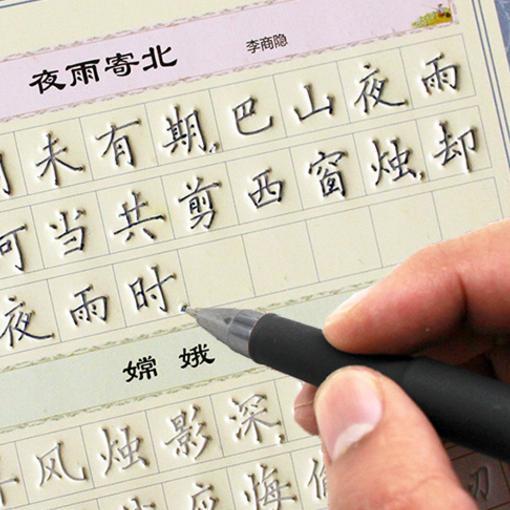 夜雨寄北 李商隐
未有期,巴山夜雨
当共剪西窗烛,却
夜雨时。
嫦娥
风烛影深
悔偷